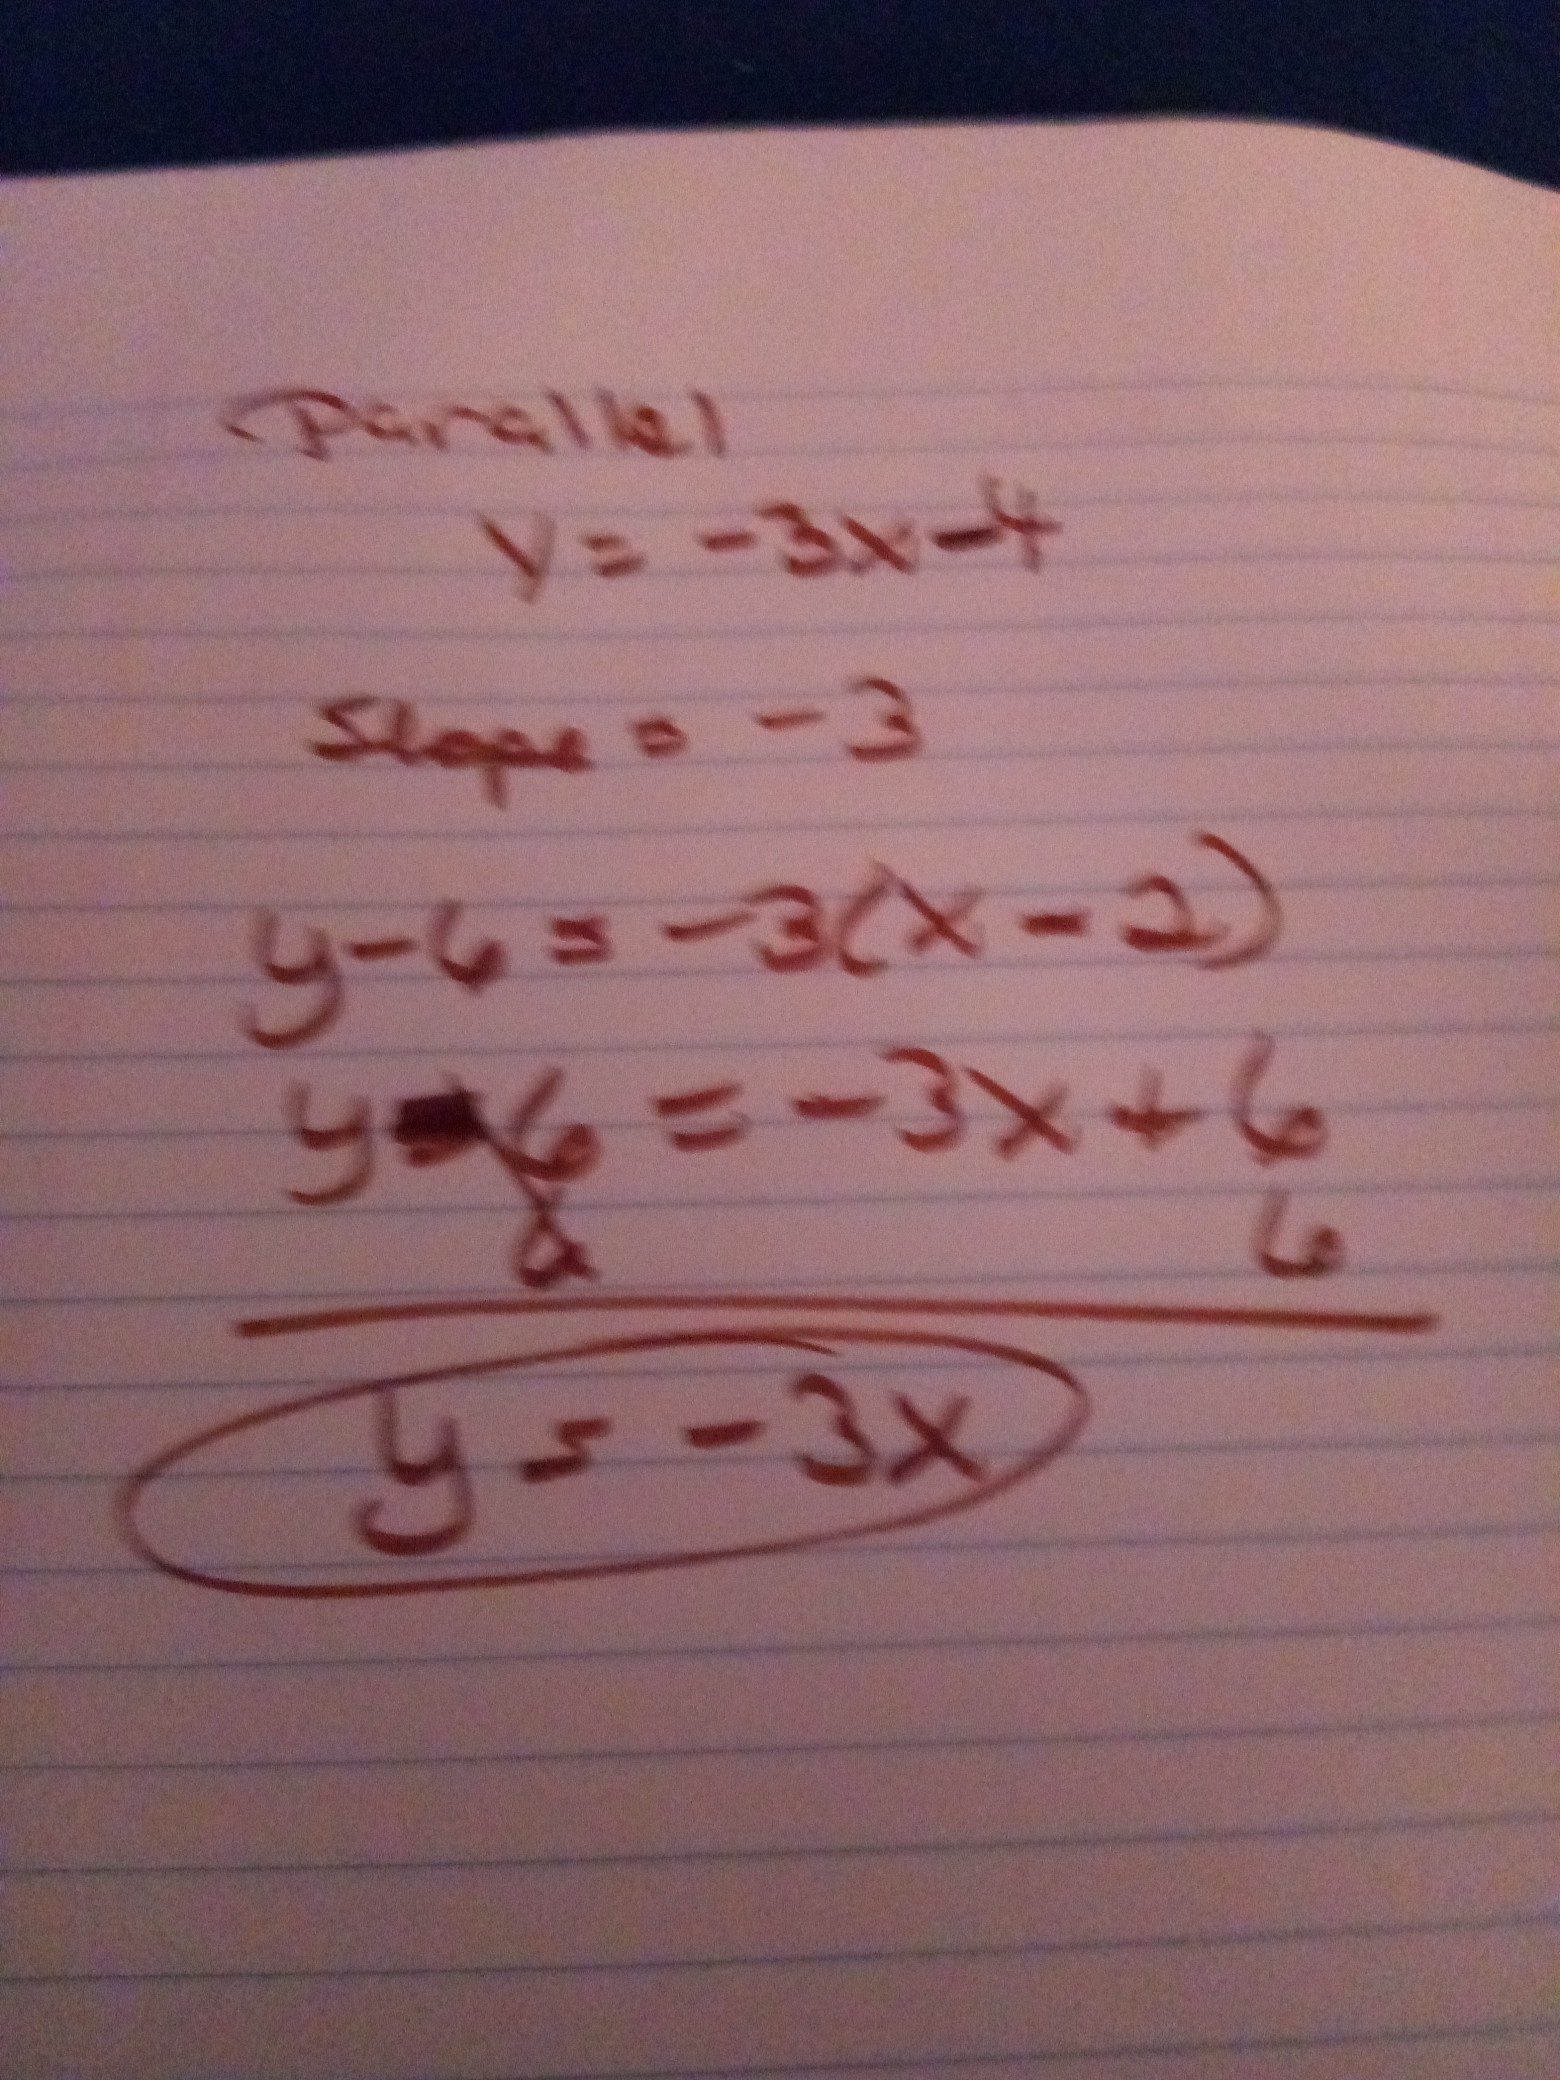 Parallel
y = -3x-4
Slope = -3
y-6 = -3(x-2)
y-6 = -3x+6
6 6
y = -3x